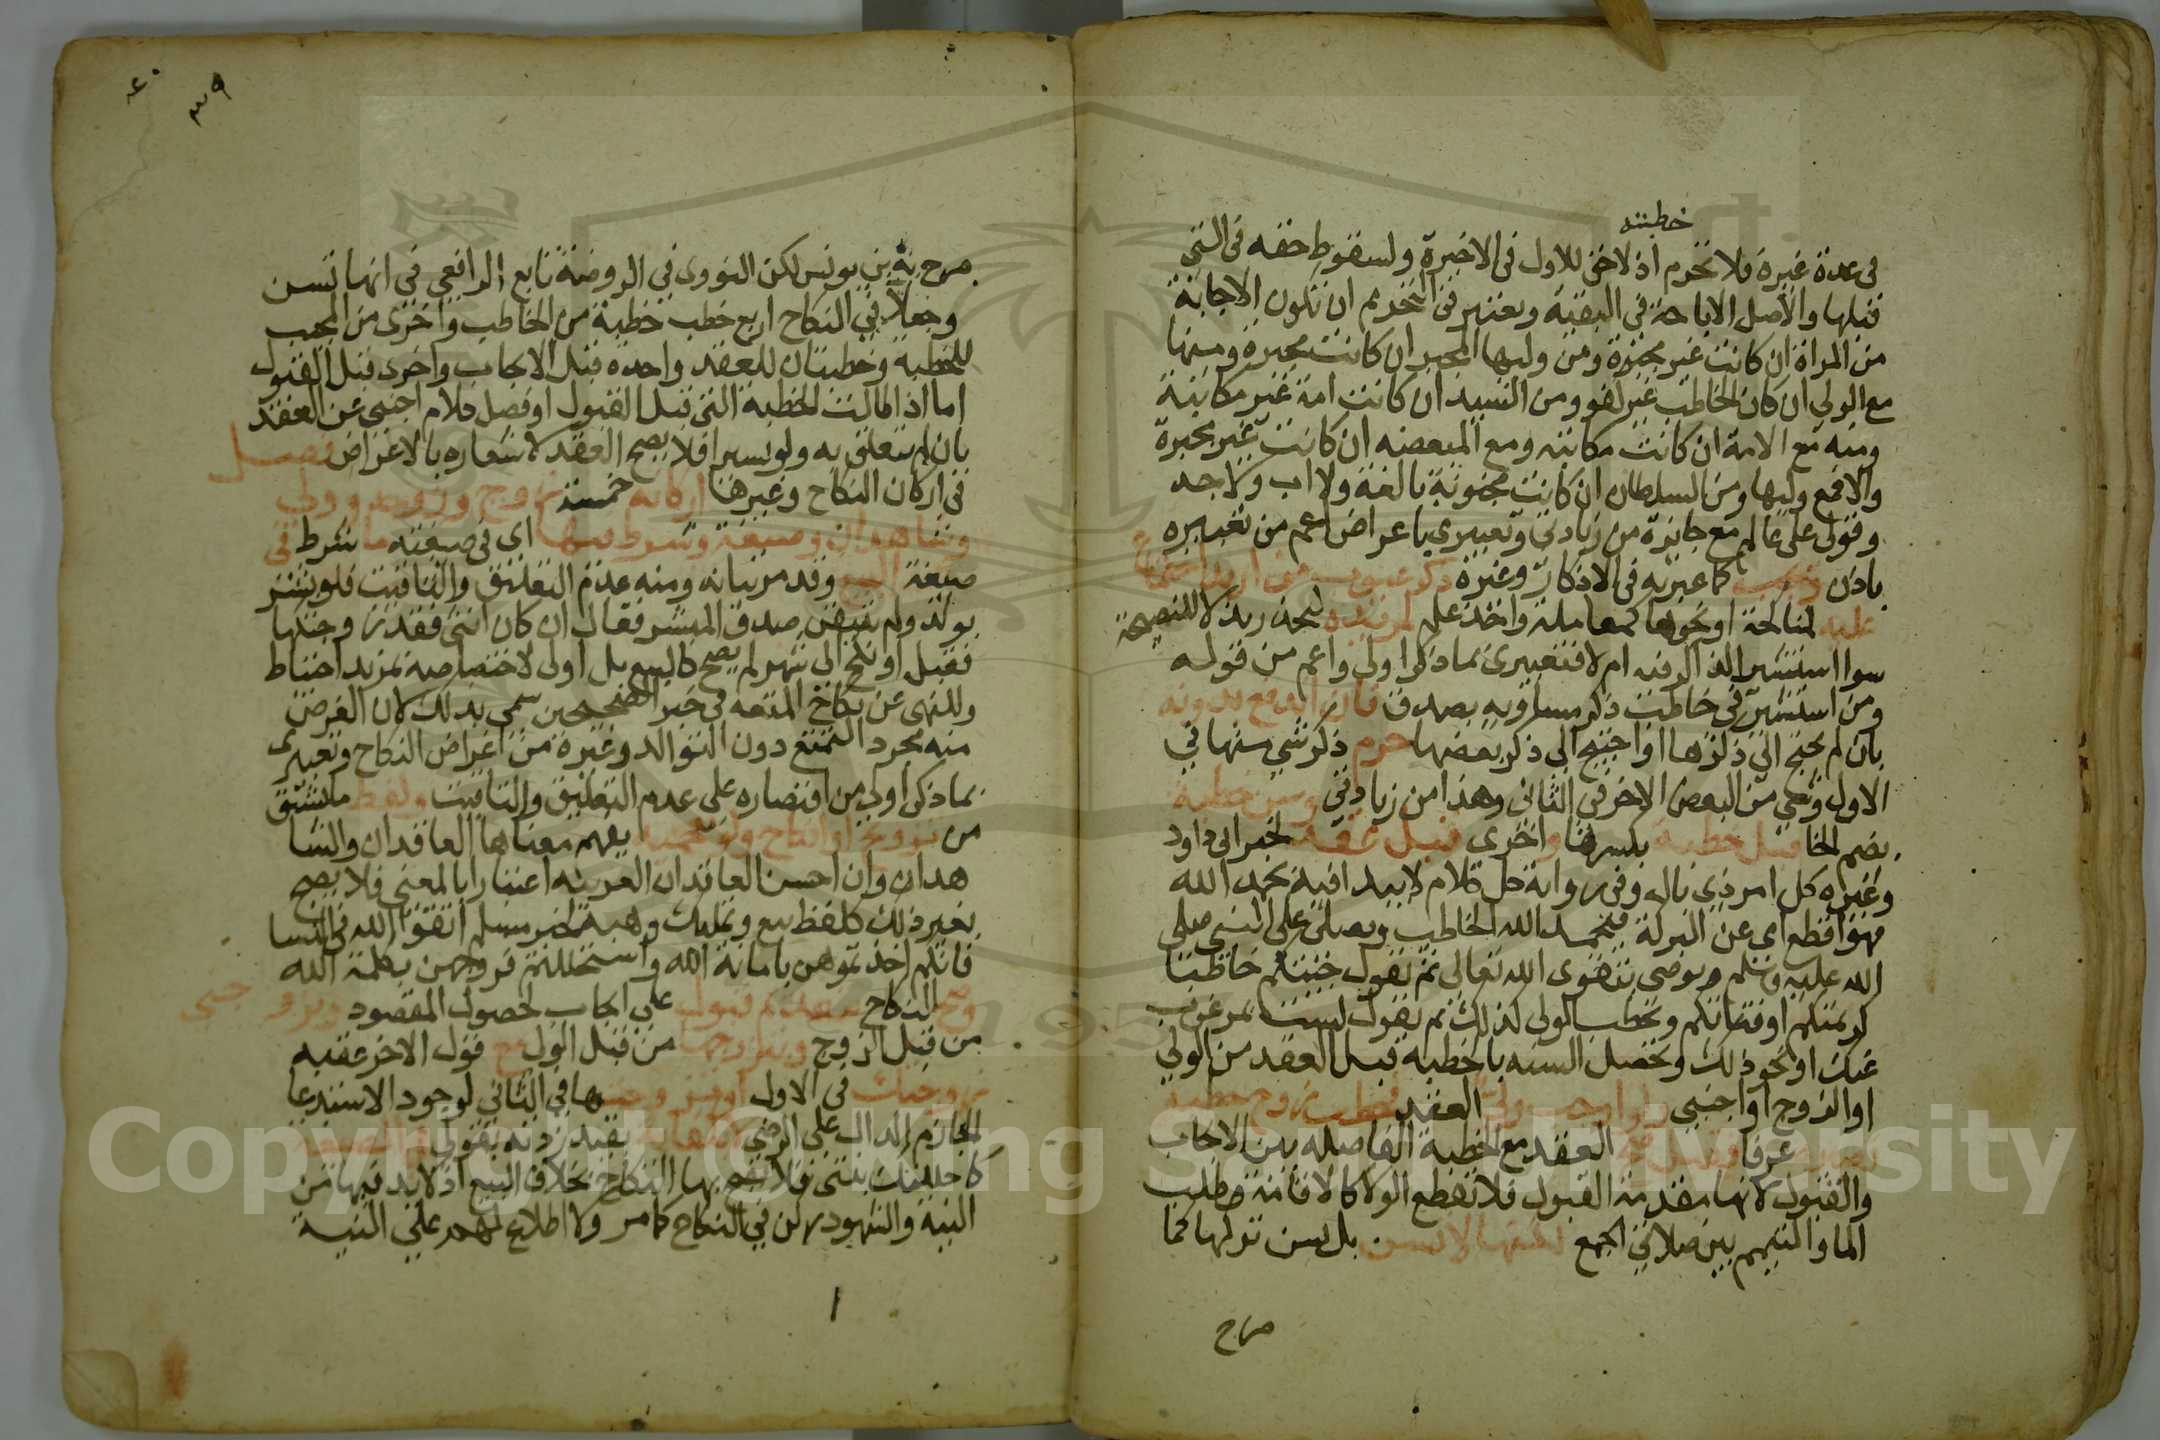 خطبته
في عدة غيره فلا تحرم اذ لا حق للاول في الاخيرة ولسقوط حقه في التي
قبلها والاصل الاباحة في البقية ويعتبر في التحريم ان تكون الاجابة
من المراة ان كانت غير مجبرة ومن وليها المجبر ان كانت مجبرة ومنها
مع الولي ان كان الخاطب غير كفو ومن السيد ان كانت امة غير مكاتبة
ومنه مع الامة ان كانت مكاتبه ومع المبعضه ان كانت غير مجبرة
والا فمع وليها ومن السلطان ان كانت مجنونة بالغة ولا اب ولا جد
وقولي على عالم مع جايزة من زيادتي وتعبيري باعراض اعم من تعبيره
باذن كما عبر به في الاذكار وغيره ذكر عيوب من اريد اجتماع
عليه لمناكحة او نحوها كمعاملة واخذ علم لمريده ليحذر بذلا للنصيحة
سوا استشير الذاكر فيه ام لا فتعبيري بما ذكر اولى واعم من قوله
ومن استشير في خاطب ذكر مساويه بصدق فان اندفع بدونه
بان لم يحتج الى ذكرها او احتيج الى ذكر بعضها حرم ذكر شي منها في
الاول وشي من البعض الاخر في الثاني وهذا من زيادتي وسن خطبة
بضم الخا قبل خطبة بكسرها واخرى قبل عقد لخبر ابي داود
وغيره كل امر ذي بال وفي رواية كل كلام لا يبدا فيه بحمد الله
فهو اقطع اي عن البركة فيحمد الله الخاطب ويصلي على النبي صلى
الله عليه وسلم ويوصي بتقوى الله تعالى ثم يقول جيتكم خاطبا
كريمتكم او فتاتكم ويخطب الولي كذلك ثم يقول لست بمرغوب
عنك او نحو ذلك وتحصل السنه بالخطبة قبل العقد من الولي
او الزوج او اجنبي ولو اوجب ولي العقد فخطب زوج خطبة
عرفا العقد مع الخطبة الفاصله بين الايجاب
والقبول لانها مقدمة القبول فلا تقطع الولا كالاقامة وطلب
الما والتيمم بين صلاتي الجمع لكنها لا تسن بل يسن تركها كما
صرح
٤٠
٣٩
صرح به بن يونس لكن النووي في الروضة تابع الرافعي في انها تسن
وجعلا في النكاح اربع خطب خطبة من الخاطب واخرى من المجيب
للخطبة وخطبتان للعقد واحده قبل الايجاب واخرى قبل القبول
اما اذا طالت الخطبة التي قبل القبول او فصل كلام اجنبي عن العقد
بان لم يتعلق به ولو يسيرا فلا يصح العقد لاشعاره بالاعراض فصل
في اركان النكاح وغيرها اركانه خمسة زوج وزوجة وولي
وشاهدان وصيغة وشرط فيها اي في صيغته ما شرط في
صيغة البيع وقد مر بيانه ومنه عدم التعليق والتاقيت فلو بشر
بولد ولم يتيقن صدق المبشر فقال ان كان انثى فقد زوجتكها
فقبل او نكح الى شهر لم يصح كالبيع بل اولى لاختصاصه بمزيد احتياط
وللنهي عن نكاح المتعه في خبر الصحيحين سمي بذلك لان الغرض
منه مجرد التمتع دون التوالد وغيره من اغراض النكاح وتعبيري
بما ذكر اولى من اقتصاره على عدم التعليق والتاقيت ولفظ ما يشتق
من تزويج او انكاح ولو بعجمية يفهم معناها العاقدان والشا
هدان وان احسن العاقدان العربيه اعتبارا بالمعنى فلا يصح
بغير ذلك كلفظ بيع وتمليك وهبة لخبر مسلم اتقوا الله في النسا
فانكم اخذتموهن بامانة الله واستحللتم فروجهن بكلمة الله
وصح النكاح بتقدم قبول على ايجاب لحصول المقصود وبزوجني
من قبل الزوج وبتزوجها من قبل الولي مع قول الاخر عقبه
زوجتك في الاول او تزوجتها في الثاني لوجود الاستدعا
الجازم الدال على الرضى لا بكناية بقيد زدته بقولي في الصيغة
كاحللتك بنتي فلا يصح بها النكاح بخلاف البيع اذ لا بد فيها من
النية والشهود ركن في النكاح كما مر ولا اطلاع لهم على النية